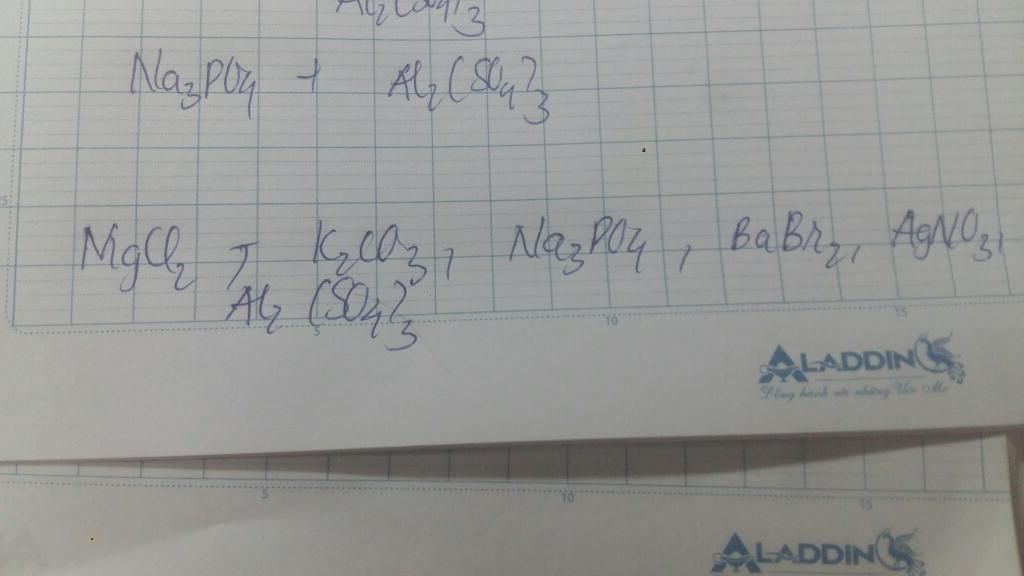 Na₃PO₄ + Al₂(SO₄)₃
MgCl₂ + K₂CO₃, Na₃PO₄, BaBr₂, AgNO₃,
Al₂(SO₄)₃
5
10
15
ALADDIN
Đồng hành với những Ước Mơ
5
10
15
ALADDIN